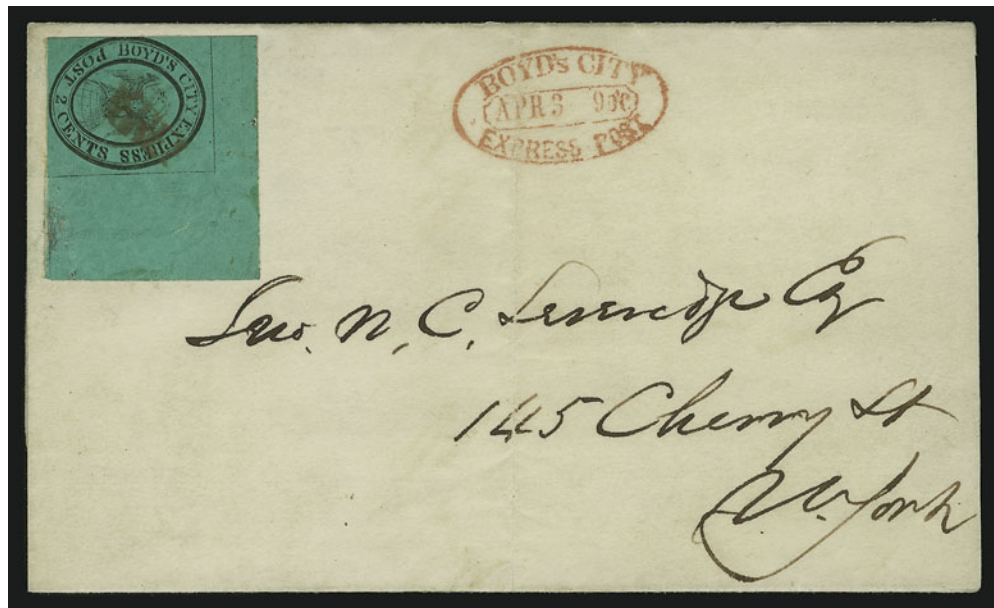 BOYD'S CITY EXPRESS POST
2 CENTS
BOYD'S CITY
APR 3 9 o'c
EXPRESS POST
N. C.
145 Cherry St
N. York